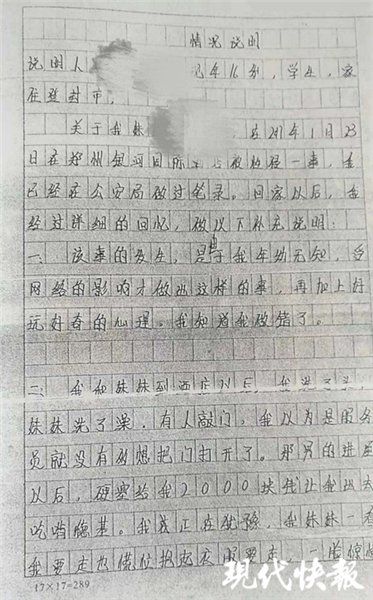 情况说明
说明人 年16岁，学生，家
在登封市，
关于我妹 ，在2017年1月23
日在郑州银河国际 被 一事，我
已经在公安局做过笔录。回家以后，我
经过详细的回忆，做以下补充说明：
一、该事的发生，是由于我年幼无知，受
网络的影响才做出这样的事，再加上好
玩好奇的心理。我知道我做错了。
二、我和妹妹到酒店以后，我洗了头，
妹妹洗了澡，有人敲门，我以为是服务
员就没有多想把门打开了。那男的进屋
以后，硬塞给我2000块钱让我出去
吃肯德基。我正在犹豫，我妹妹一看
我要走
17×17=289
现代快报